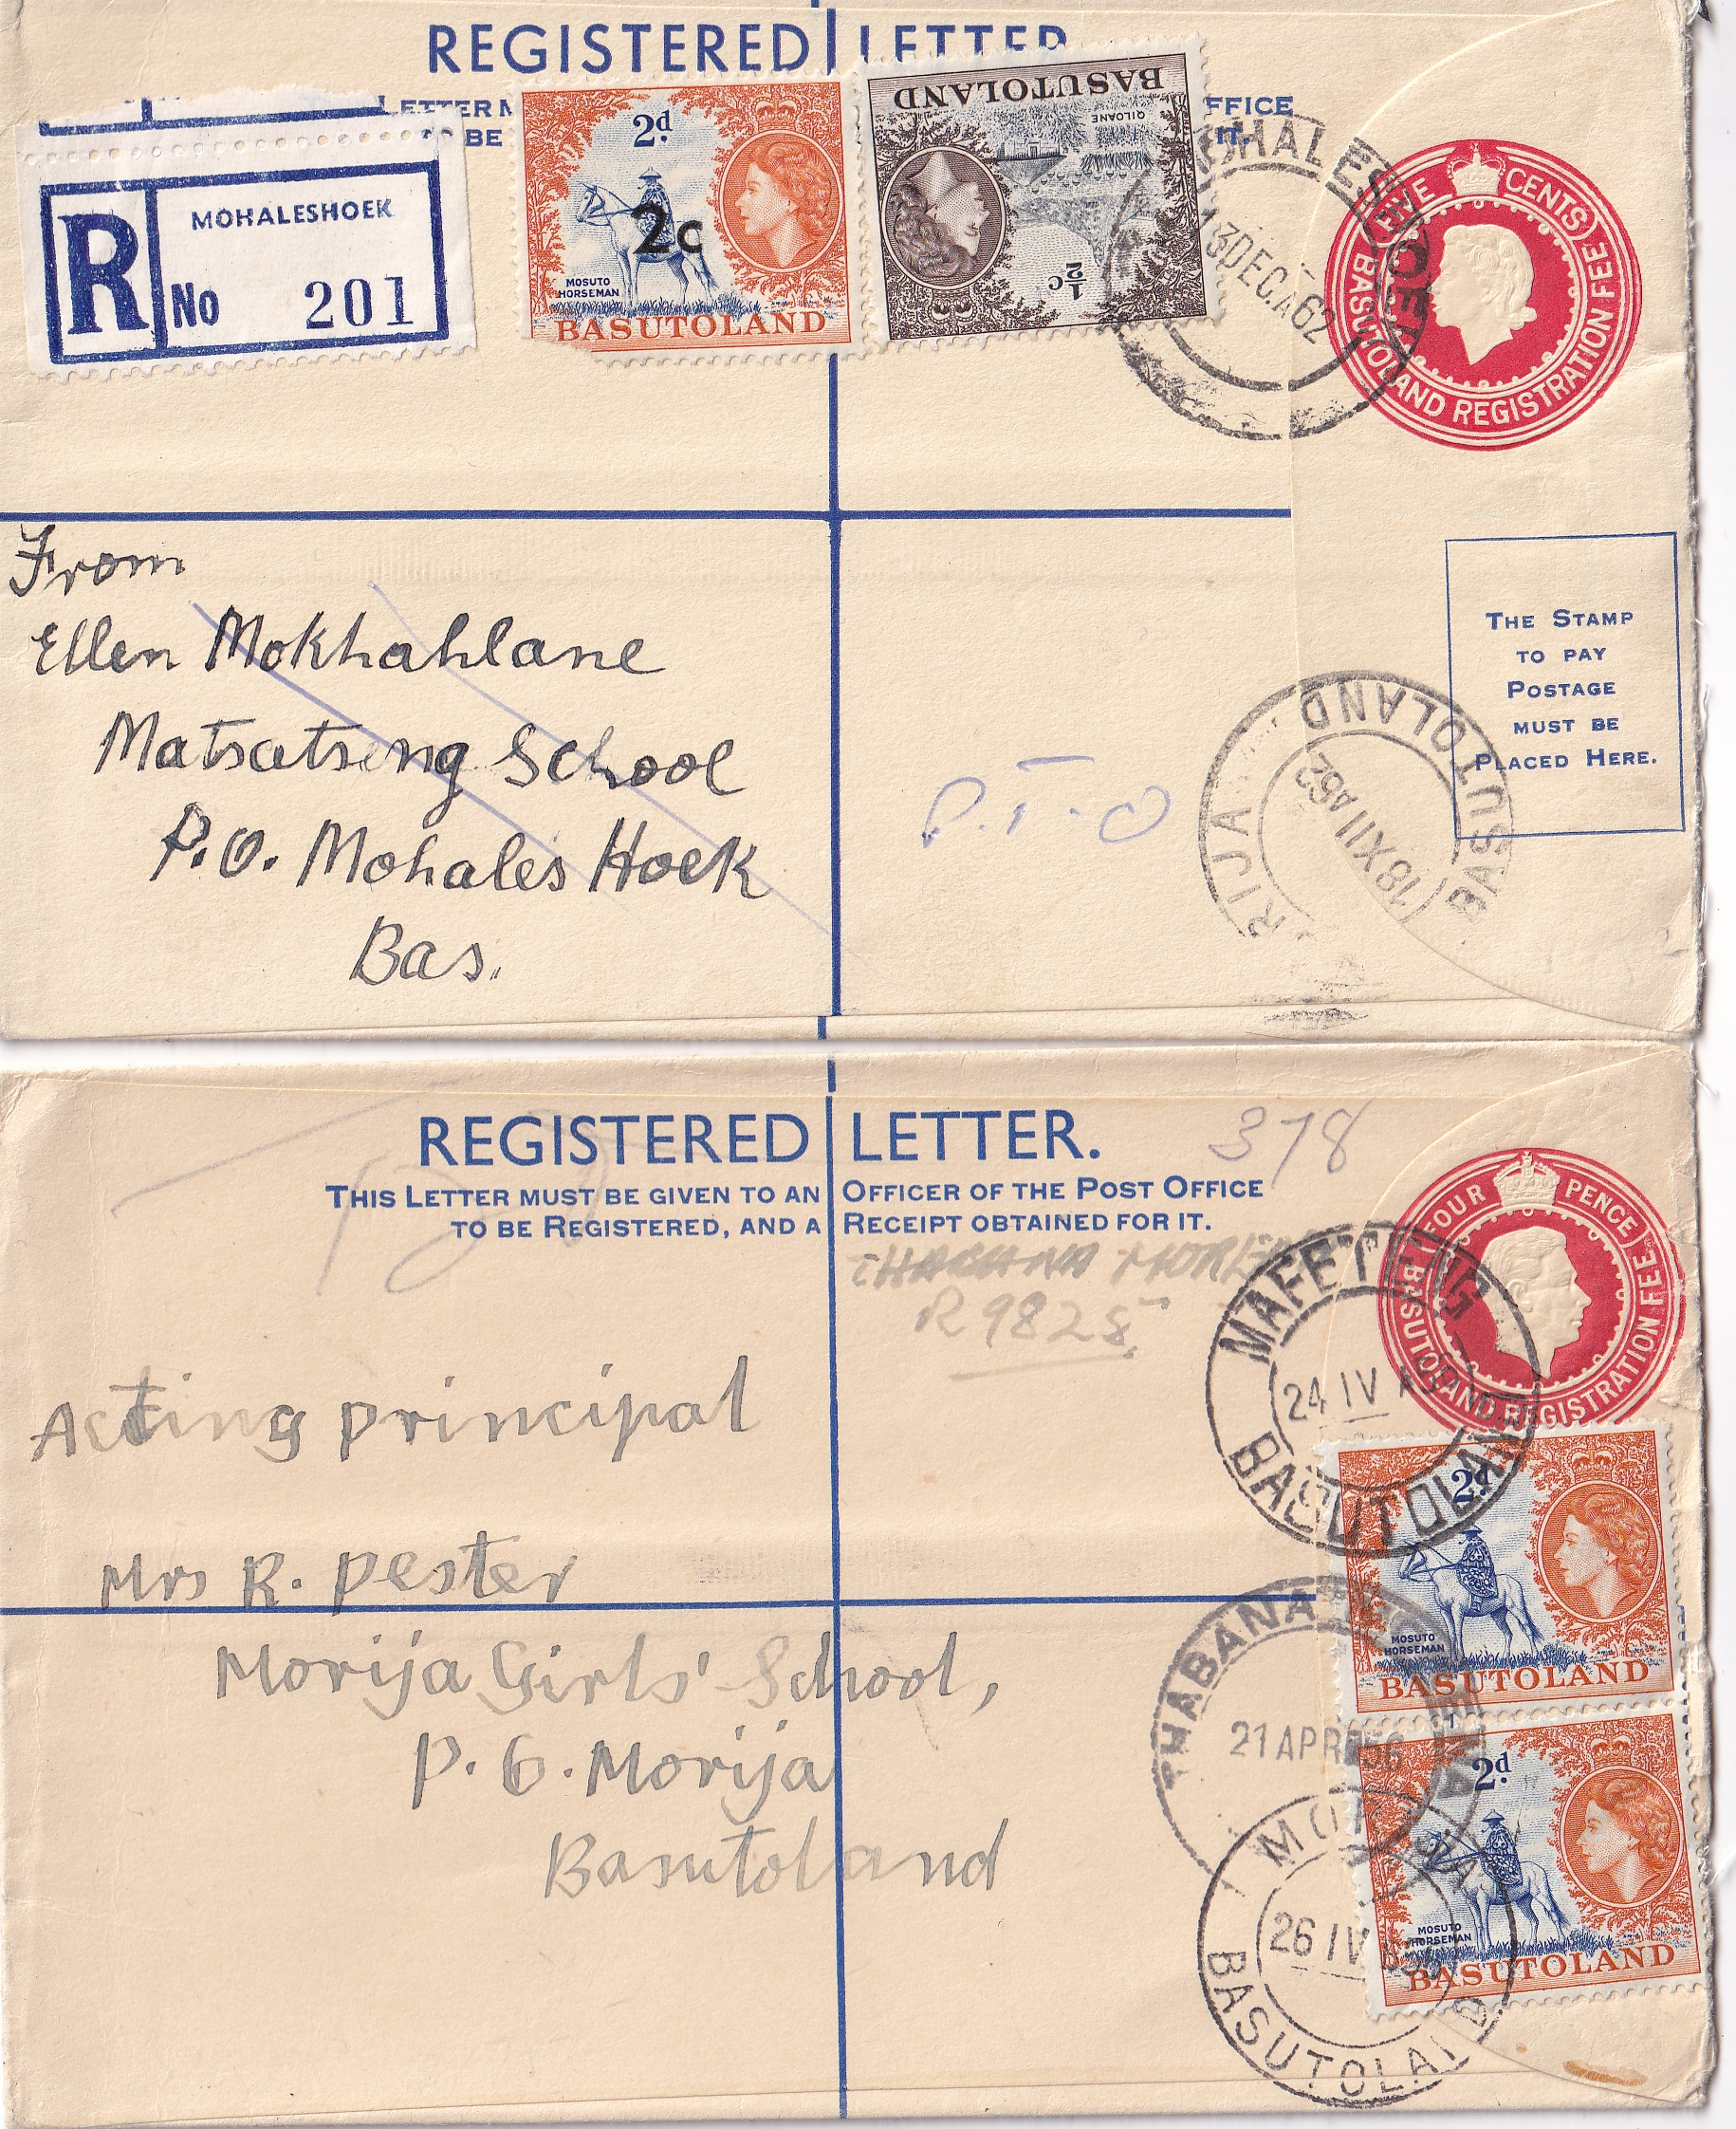 REGISTERED LETTER
LETTER M
FFICE
TO BE
IT.
R
MOHALESHOEK
No 201
2d
2c
MOSUTO
HORSEMAN
BASUTOLAND
BASUTOLAND
QILOANE
½c
13 DEC.A 62
FIVE CENTS
BASUTOLAND REGISTRATION FEE
From
Ellen Mokhahlane
Matsatseng School
P.O. Mohales Hoek
Bas.
P.T.O
RIJA BASUTOLAND
18 XII A62
THE STAMP
TO PAY
POSTAGE
MUST BE
PLACED HERE.
REGISTERED LETTER.
378
THIS LETTER MUST BE GIVEN TO AN OFFICER OF THE POST OFFICE
TO BE REGISTERED, AND A RECEIPT OBTAINED FOR IT.
R 9828
FOUR PENCE
BASUTOLAND REGISTRATION FEE
MAFETENG
24 IV
BASUTOLAND
Acting principal
Mrs R. Pester
Morija Girls' School,
P.O. Morija
Basutoland
2d
MOSUTO
HORSEMAN
BASUTOLAND
THABANA
21 APR 56
2d
MOSUTO
HORSEMAN
BASUTOLAND
26 IV
BASUTOLAND